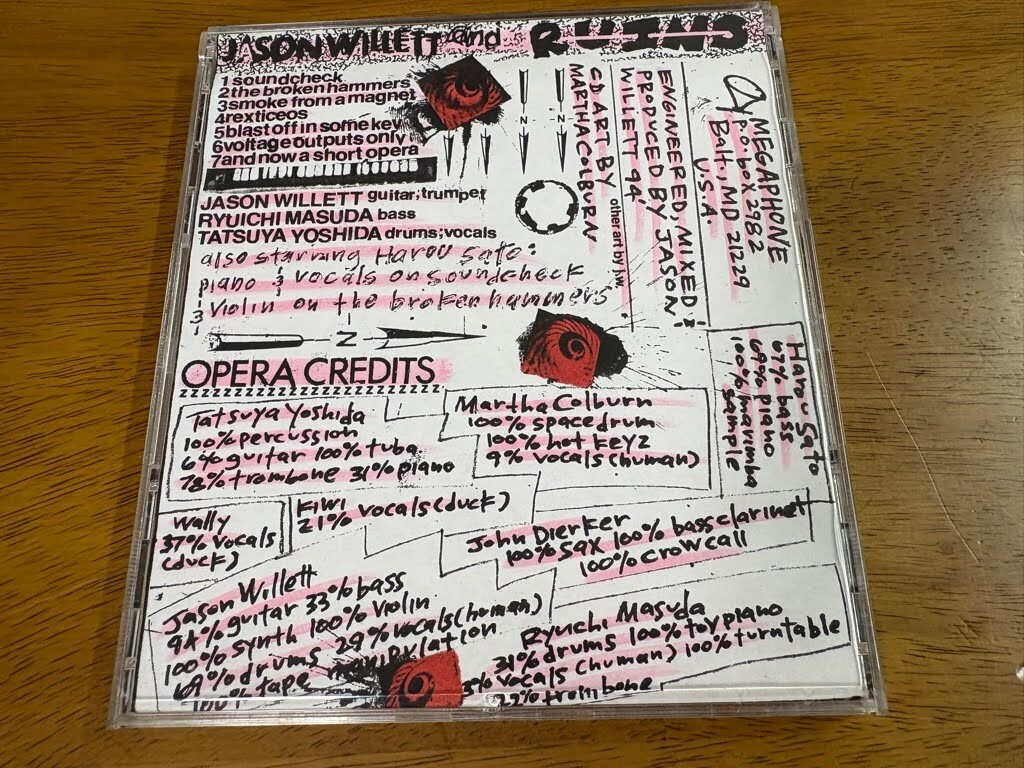 JASON WILLETT and RUINS
1 soundcheck
2 the broken hammers
3 smoke from a magnet
4 rexticeos
5 blast off in some key
6 voltage outputs only
7 and now a short opera
JASON WILLETT guitar; trumpet
RYUICHI MASUDA bass
TATSUYA YOSHIDA drums; vocals
also starring Harou Sato:
piano & vocals on soundcheck
violin on the broken hammers
N
N
N
CD ART BY
MARTHA COLBURN
other art by j.w.
ENGINEERED, MIXED &
PRODUCED BY JASON
WILLETT 94'
MEGAPHONE
P.O. BOX 2982
Balt., MD 21229
U.S.A.
OPERA CREDITS
zzzzzzzzzzzzzzzzzzzzzzzzzz
Tatsuya Yoshida
100% percussion
6% guitar 100% tuba
78% trombone 31% piano
Martha Colburn
100% spacedrum
100% hot keyz
9% vocals (human)
Harou Sato
67% bass
69% piano
100% marimba
sample
Wally
37% vocals
(duck)
Kiwi
21% vocals (duck)
John Dierker
100% sax 100% bass clarinet
100% crow call
Jason Willett
94% guitar 33% bass
100% synth 100% violin
69% drums 29% vocals (human)
tape manipulation
Ryuchi Masuda
31% drums 100% toy piano
5% vocals (human) 100% turntable
22% trombone